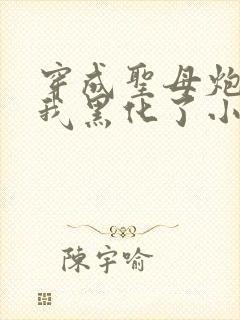 穿成聖母炮
我黑化了小
陳宇喻